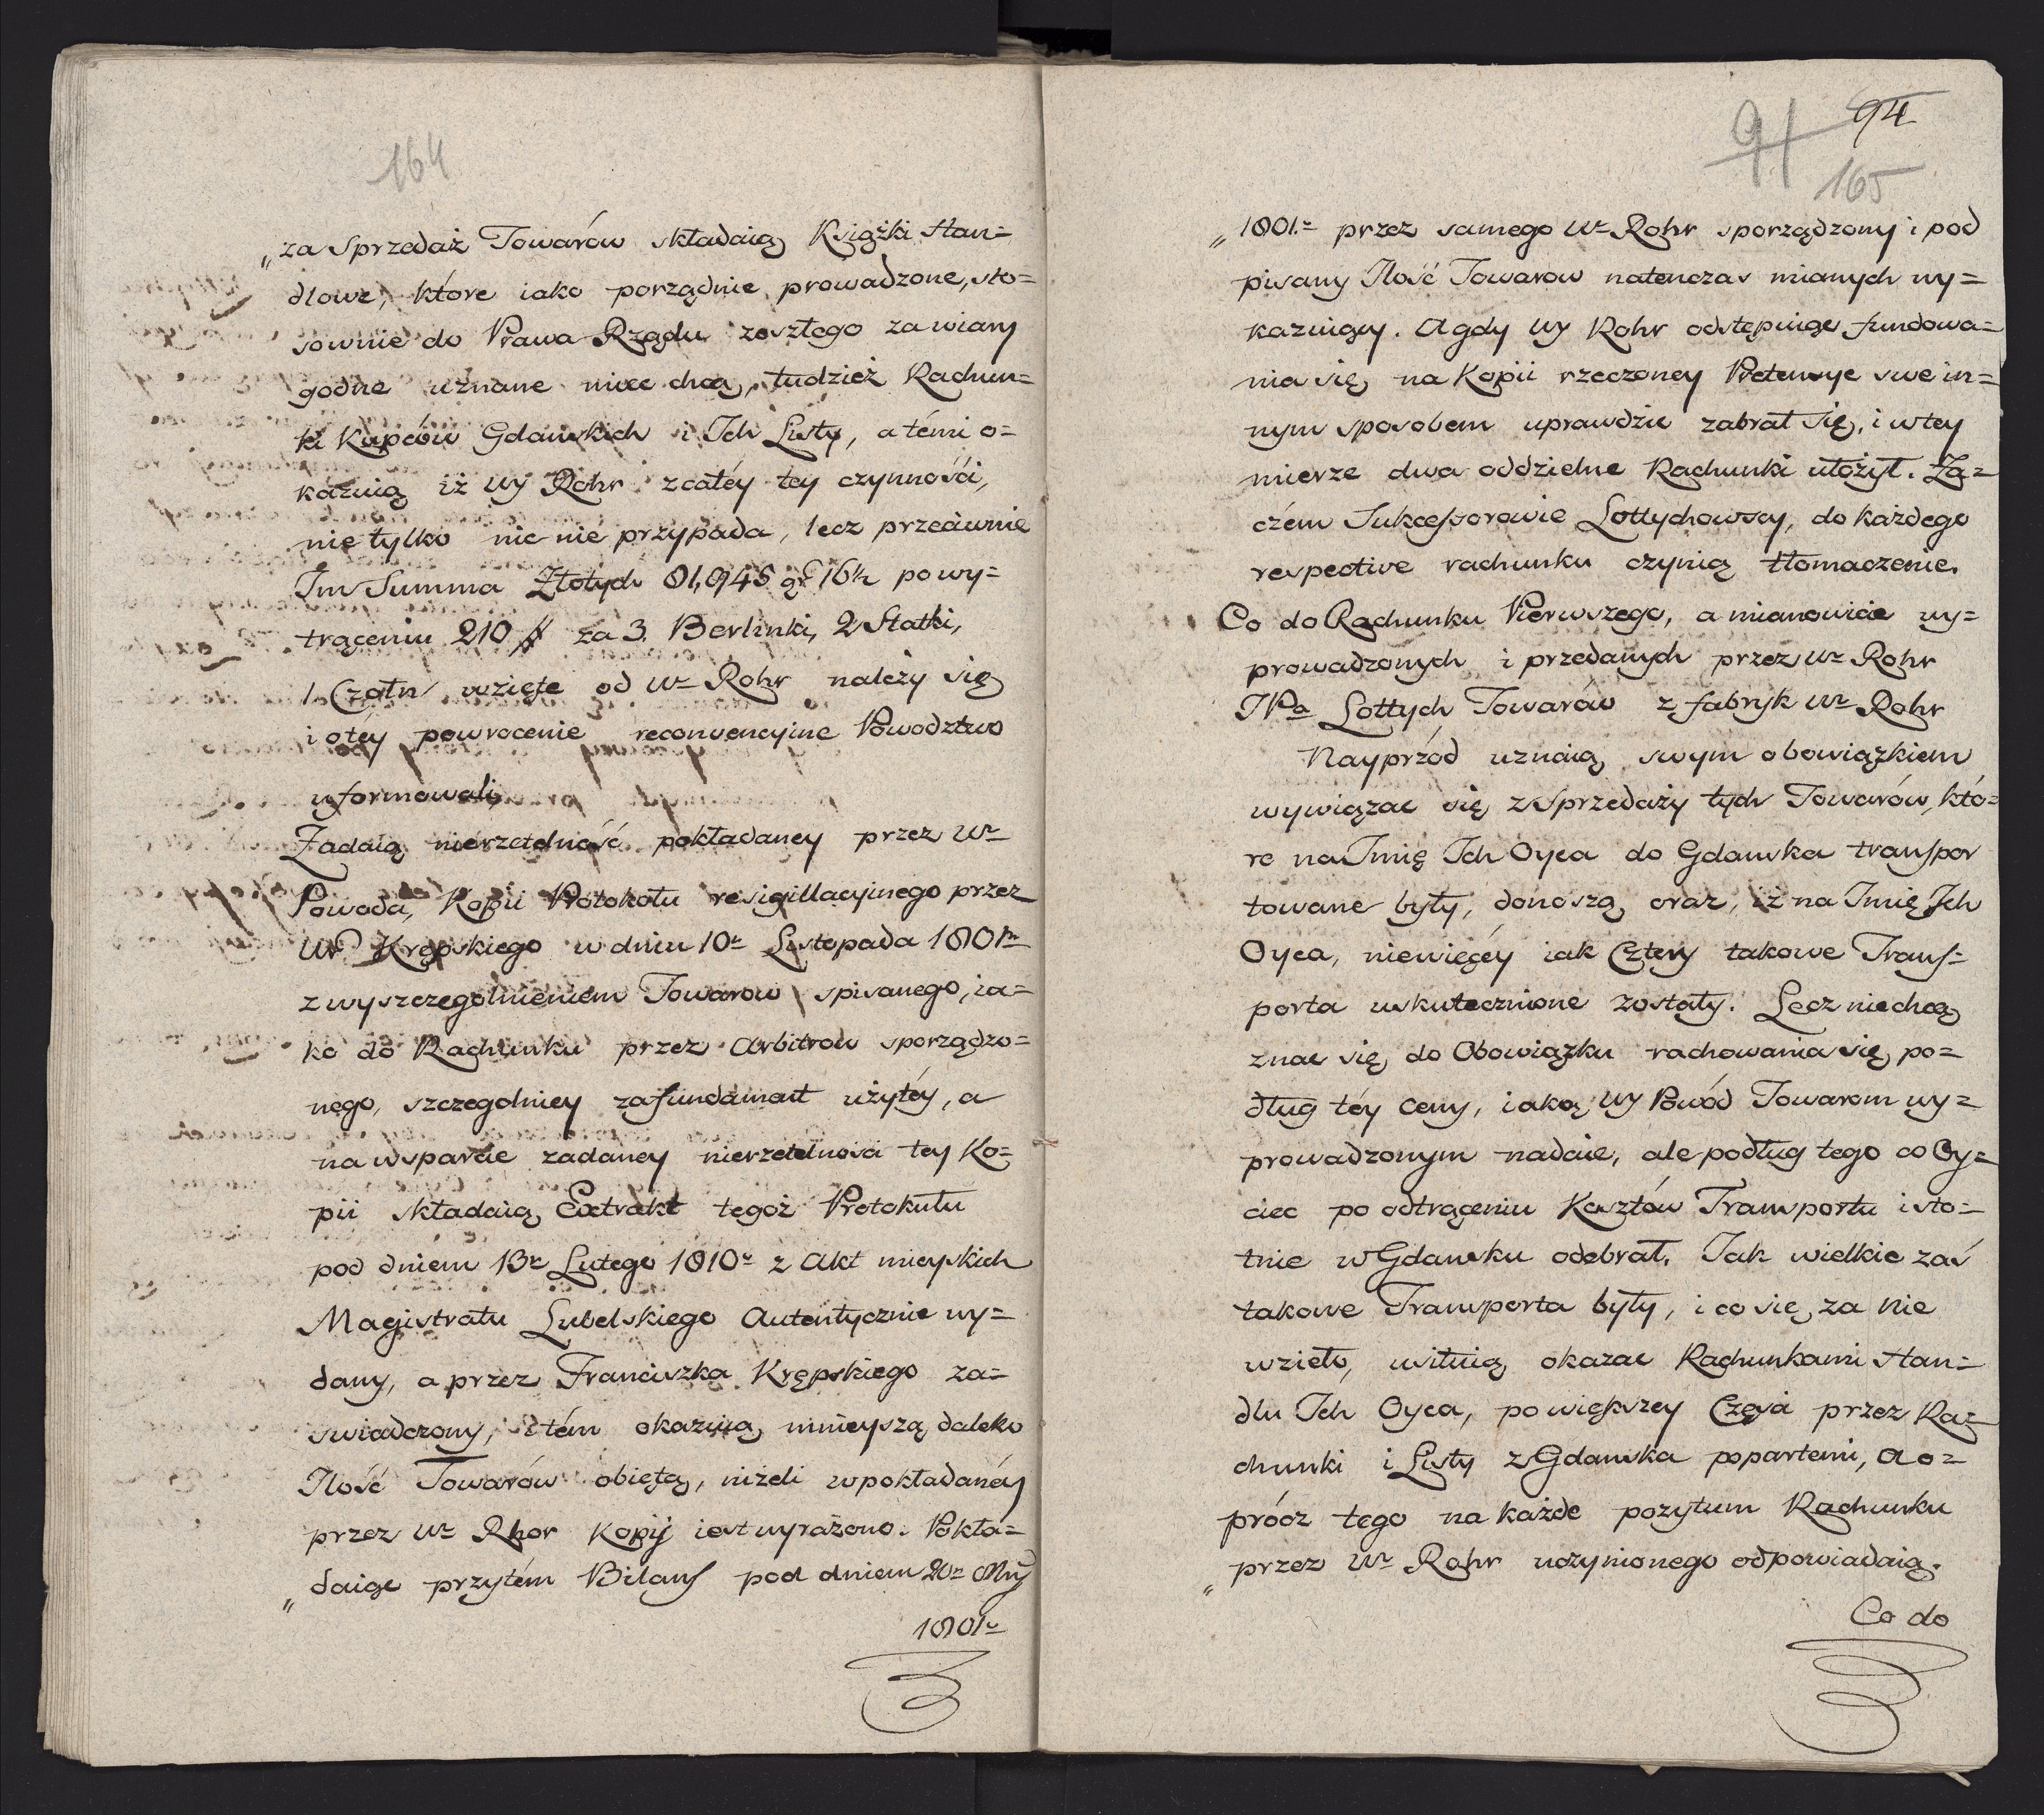 164
„ za Sprzedaż Towarów składaią Książki Han=
dlowe, które iako porządnie prowadzone, sto=
sownie do Prawa Rządu zeszłego za wiary
godne uznane mieć chcą, tudzież Rachun=
ki Kupców Gdanskich i Ich Listy, a témi o=
kazuią iż Wy Rohr z całéy tey czynności,
nie tylko nic nie przypada, lecz przeciwnie
Im Summa Złotych 81,945 gr 16½ po wy=
trąceniu 210 # za 3. Berlinki, 2 Statki,
1. Czółn wzięte od Wo Rohr należy się
i o téy powrocenie reconvencyine Powodztwo
uformowali,
Zadaią nierzetelność pokładaney przez Wo
Powoda, Kopii Protokołu resigillacyinego przez
UP. Krępskiego w dniu 10o Listopada 1801o
z wyszczegolnieniem Towarow spisanego, ia=
ko do Rachunku przez Arbitrow sporządzo=
nego, szczegolniey za fundament użytéy, a
na wsparcie zadaney nierzetelności tey Ko=
pii składaią Extrakt tegoż Protokułu
pod dniem 13o Lutego 1810o z Akt mieyskich
Magistratu Lubelskiego Autentycznie wy=
dany, a przez Franciszka Krępskiego za=
swiadczony, i tém okazuią mnieyszą daleko
Ilość Towarów obiętą, niżeli w pokładanéy
przez Wo Rhor Kopij iest wyrażono. Pokła=
„ daiąc przytém Bilans pod dniem 20o May
1801o
91 94
165
„ 1801.o przez samego Wo Rohr sporządzony i pod
pisany Ilość Towarow natenczas mianych wy=
kazuiący. A gdy Wy Rohr odstępuiąc fundowa=
nia się na Kopii rzeczoney Pretensye swe in=
nym sposobem uprawdzić zabrał się, i w tey
mierze dwa oddzielne Rachunki ułożył. Za=
czém Sukcessorowie Lottychowscy, do każdego
respective rachunku czynią tłomaczenie.
Co do Rachunku Pierwszego, a mianowicie wy=
prowadzonych i przedanych przez Wo Rohr
JPa Lottych Towarów z fabryk Wo Rohr
Nayprzód uznaią swym obowiązkiem
wywiązac się z Sprzedaży tych Towarów, któ=
re na Imię Ich Oyca do Gdanska transpor
towane były, donoszą oraz, iż na Imię Ich
Oyca, niewięcéy iak Cztery takowe Trans=
porta uskutecznione zostały. Lecz nie chcą
znac się do Obowiązku rachowania się po=
dług téy ceny, iaką Wy Powód Towarom wy=
prowadzonym nadaie, ale podług tego co Oy=
ciec po odtrąceniu Kosztów Transportu isto=
tnie w Gdansku odebrał. Jak wielkie zaś
takowe Transporta były, i co się za nie
wzieło, usiłuią okazac Rachunkami Han=
dlu Ich Oyca, po większey Części przez Ra=
chunki i Listy z Gdanska popartemi, a o=
prócz tego na każde pozytum Rachunku
„ przez Wo Rohr uczynionego odpowiadaią.
Co do